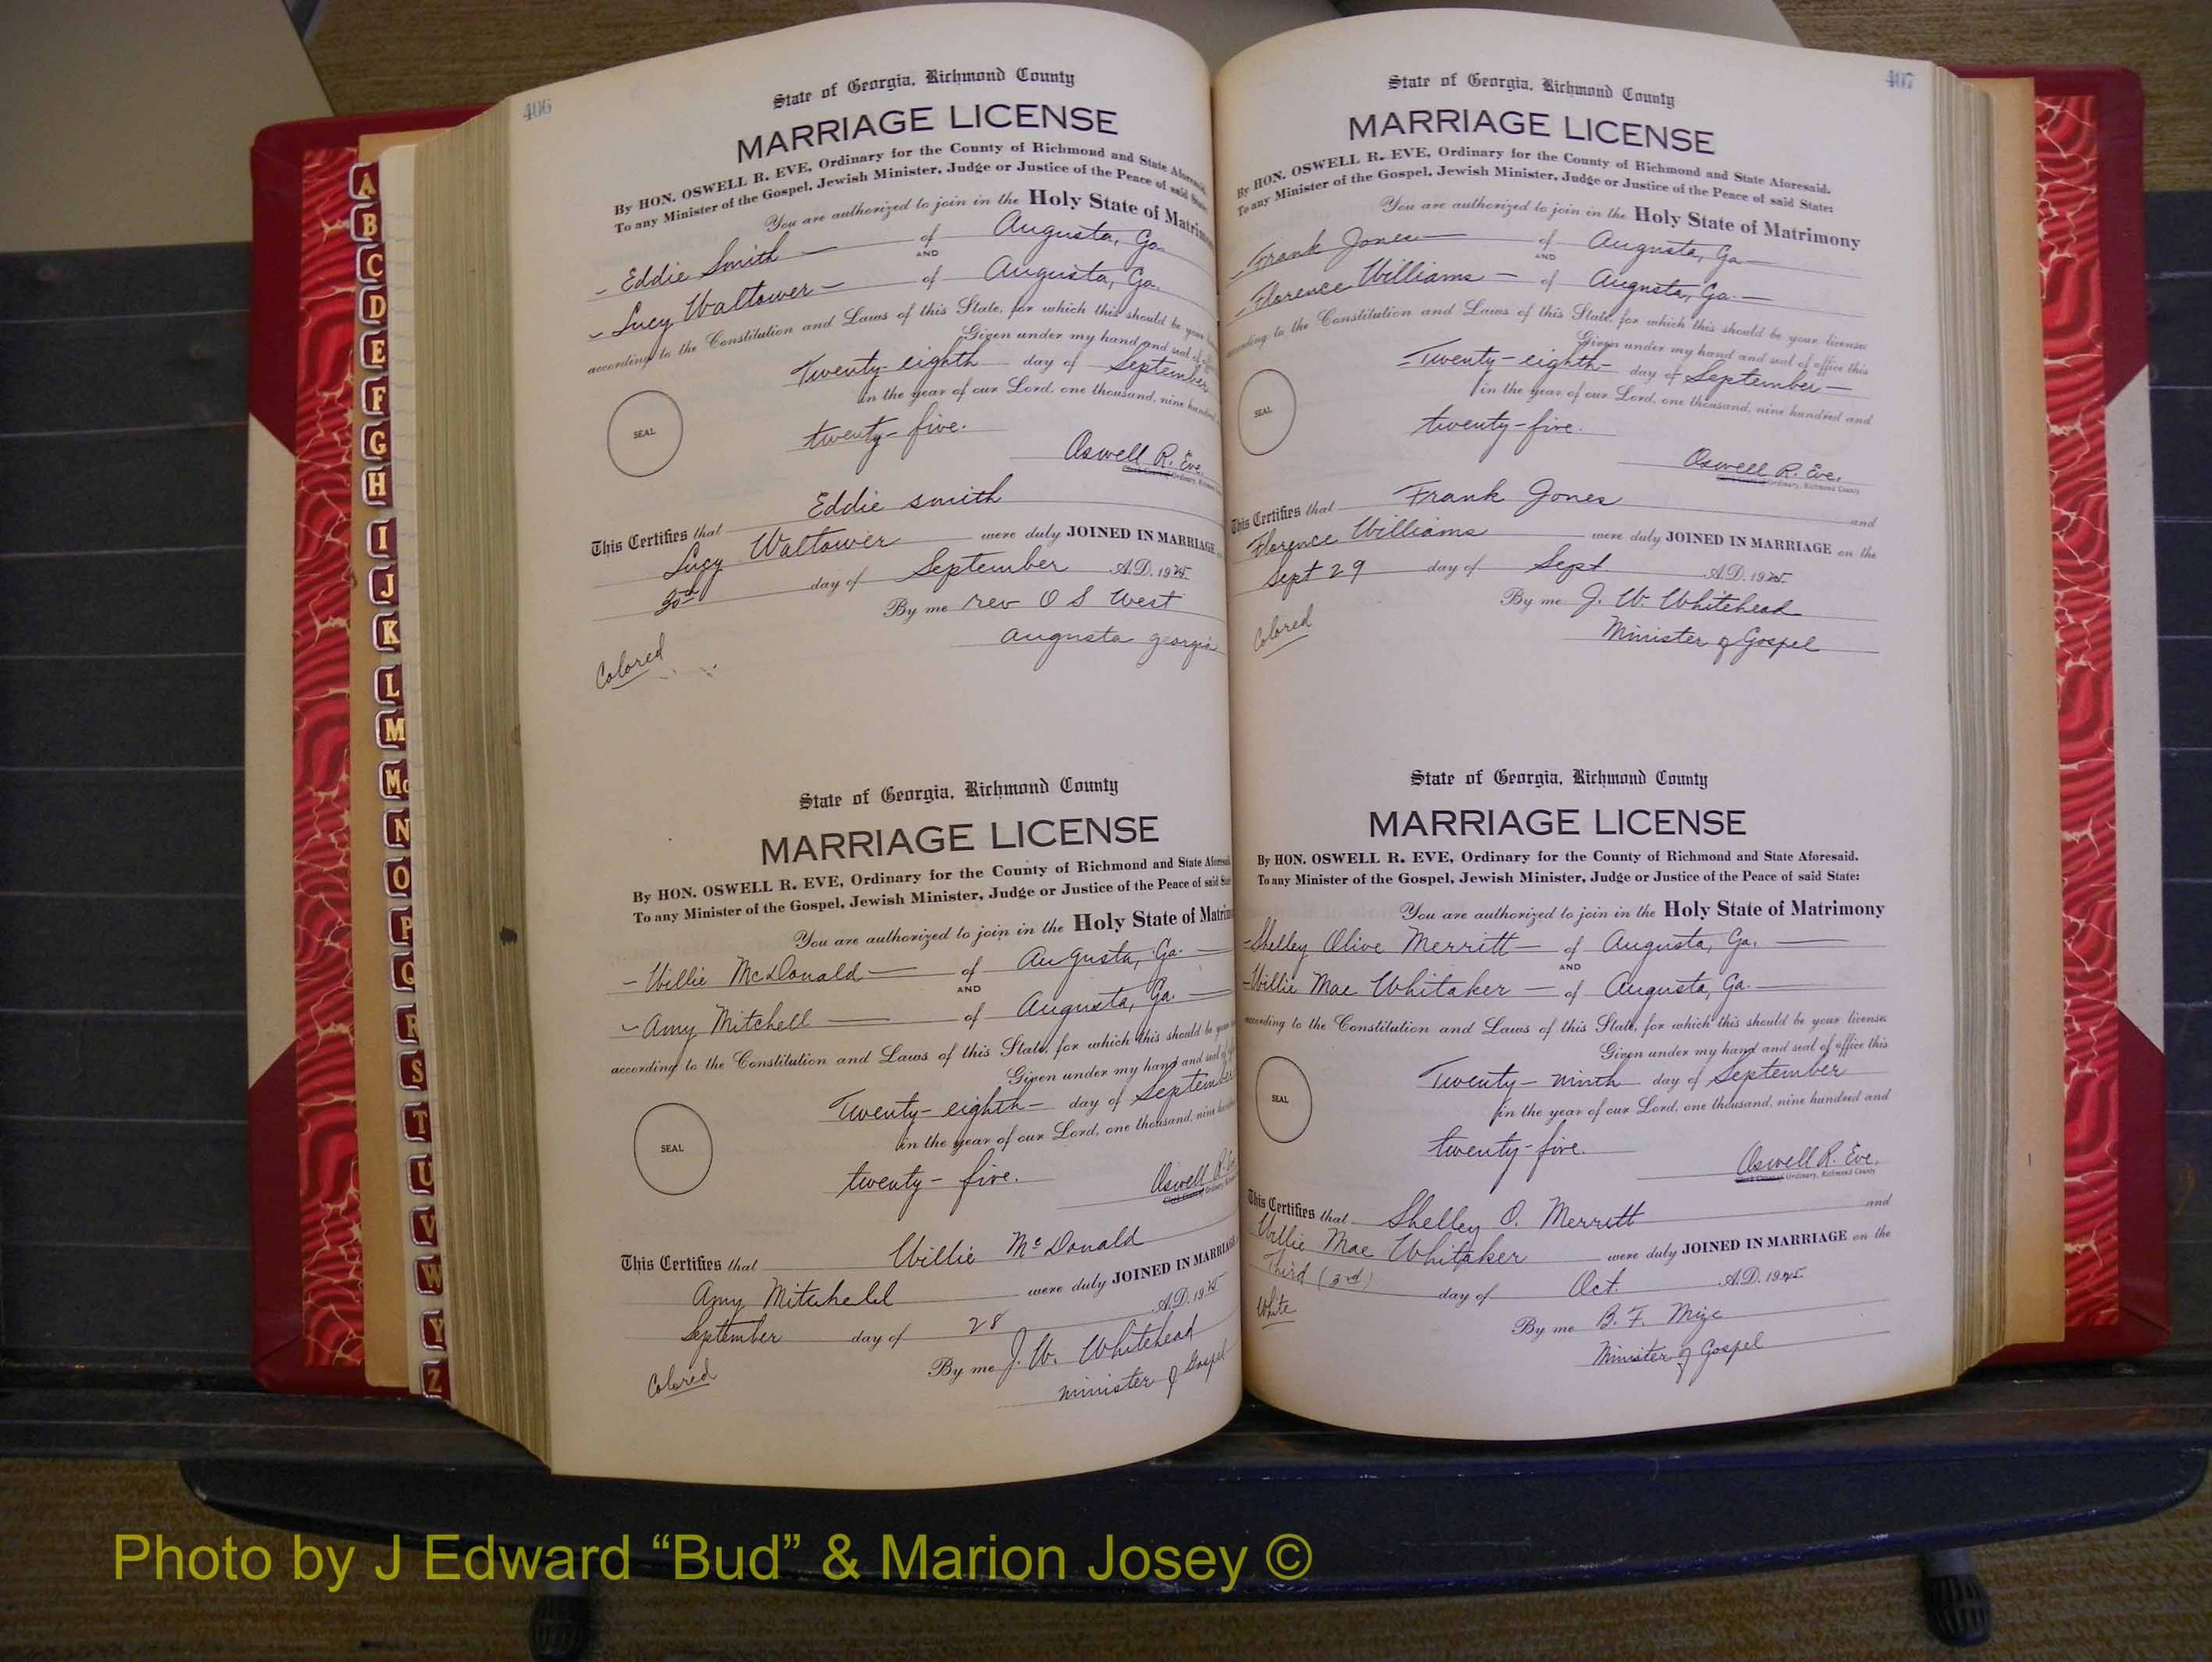 406
State of Georgia, Richmond County
MARRIAGE LICENSE
By HON. OSWELL R. EVE, Ordinary for the County of Richmond and State Aforesaid.
To any Minister of the Gospel, Jewish Minister, Judge or Justice of the Peace of said State:
You are authorized to join in the Holy State of Matrimony
- Eddie Smith - of Augusta, Ga.
AND
- Lucy Waltower - of Augusta, Ga.
according to the Constitution and Laws of this State, for which this should be your
Given under my hand and seal of
Twenty-eighth day of September
in the year of our Lord, one thousand, nine hundred
SEAL
twenty-five.
Oswell R. Eve.
Clerk Court of Ordinary, Richmond
This Certifies that Eddie smith
Lucy Waltower were duly JOINED IN MARRIAGE
30th day of September A.D. 1925
By me rev O S West
augusta georgia
Colored
State of Georgia, Richmond County
MARRIAGE LICENSE
By HON. OSWELL R. EVE, Ordinary for the County of Richmond and State Aforesaid
To any Minister of the Gospel, Jewish Minister, Judge or Justice of the Peace of said
You are authorized to join in the Holy State of Matrim
- Willie McDonald - of Augusta, Ga.
AND
- Amy Mitchell - of Augusta, Ga.
according to the Constitution and Laws of this State, for which this should be your
Given under my hand and seal of
Twenty-eighth- day of September
in the year of our Lord, one thousand, nine
SEAL
twenty-five.
Oswell R.
Clerk Court of Ordinary,
This Certifies that Willie McDonald
Amy Mitchell were duly JOINED IN MARRIAGE
September day of 28 A.D. 1925
By me J. W. Whitehead
minister of Gospel
Colored
407
State of Georgia, Richmond County
MARRIAGE LICENSE
By HON. OSWELL R. EVE, Ordinary for the County of Richmond and State Aforesaid.
To any Minister of the Gospel, Jewish Minister, Judge or Justice of the Peace of said State:
You are authorized to join in the Holy State of Matrimony
- Frank Jones - of Augusta, Ga -
AND
- Florence Williams - of Augusta, Ga. -
according to the Constitution and Laws of this State, for which this should be your license
Given under my hand and seal of office this
-Twenty-eighth- day of September -
in the year of our Lord, one thousand, nine hundred and
SEAL
twenty-five.
Oswell R. Eve.
Clerk Court of Ordinary, Richmond County
This Certifies that Frank Jones and
Florence Williams were duly JOINED IN MARRIAGE on the
Sept 29 day of Sept A.D. 1925
By me J. W. Whitehead
Minister of Gospel
Colored
State of Georgia, Richmond County
MARRIAGE LICENSE
By HON. OSWELL R. EVE, Ordinary for the County of Richmond and State Aforesaid.
To any Minister of the Gospel, Jewish Minister, Judge or Justice of the Peace of said State:
You are authorized to join in the Holy State of Matrimony
- Shelley Olive Merritt - of Augusta, Ga. -
AND
- Willie Mae Whitaker - of Augusta, Ga. -
according to the Constitution and Laws of this State, for which this should be your license
Given under my hand and seal of office this
Twenty-ninth day of September
in the year of our Lord, one thousand, nine hundred and
SEAL
twenty-five.
Oswell R. Eve.
Clerk Court of Ordinary, Richmond County
This Certifies that Shelley O. Merritt and
Willie Mae Whitaker were duly JOINED IN MARRIAGE on the
Third (3rd) day of Oct. A.D. 1925
By me B. F. Mize
Minister of Gospel
White
A
B
C
D
E
F
G
H
I
J
K
L
M
Mc
N
O
P
Q
R
S
T
U
V
W
Y
Z
Photo by J Edward “Bud” & Marion Josey ©